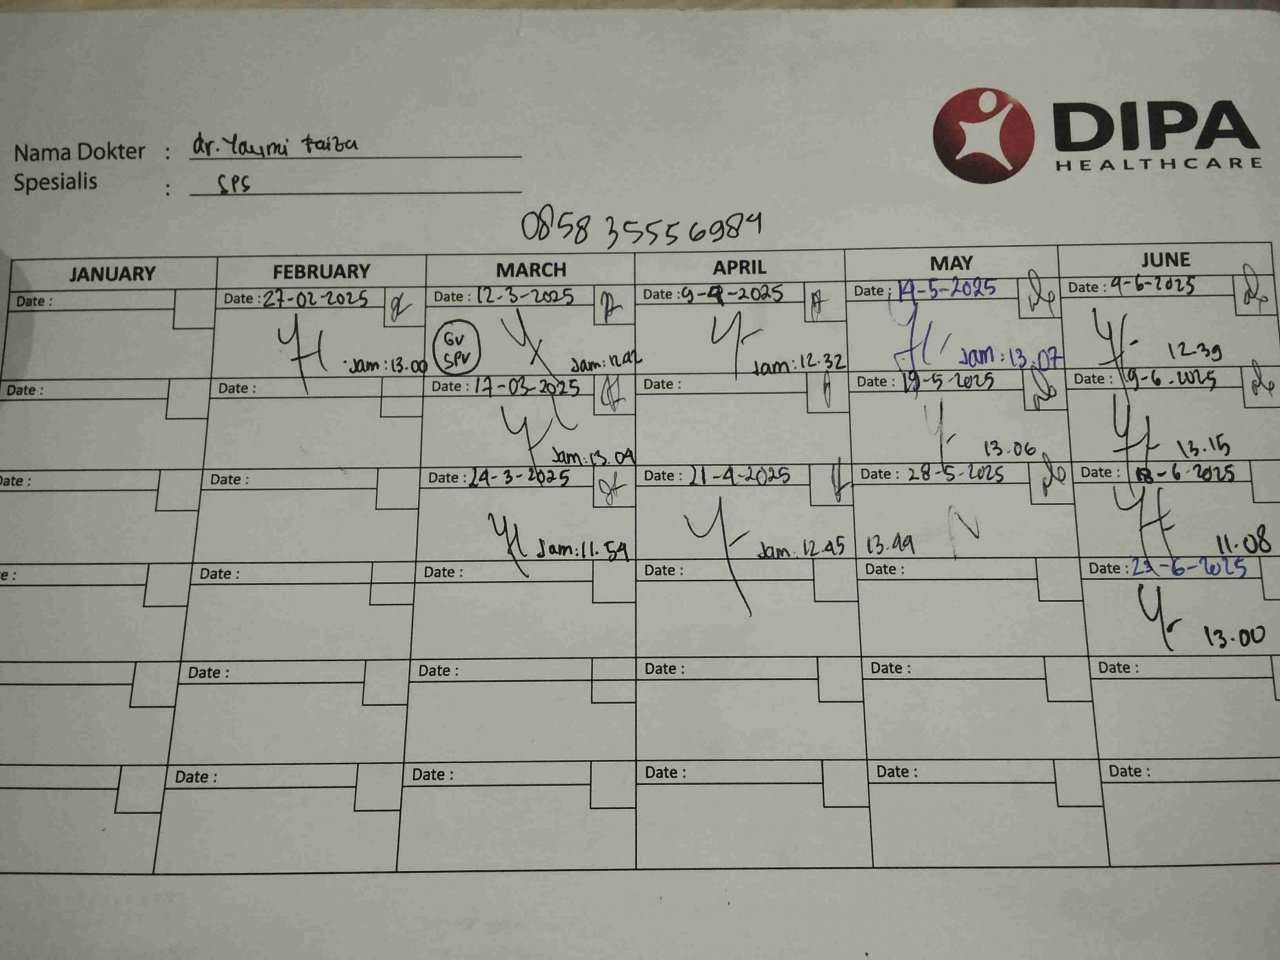 DIPA
HEALTHCARE
Nama Dokter : dr. Yaymi Faiza
Spesialis : SPS
0858 35556984
JANUARY FEBRUARY MARCH APRIL MAY JUNE
Date : Date : 27-02-2025 Date : 12-3-2025 Date : 9-4-2025 Date : 14-5-2025 Date : 4-6-2025
Jam : 13.00 GV SPV Jam : Jam : 12.32 Jam : 13.07 12.39
Date : Date : Date : 17-03-2025 Date : Date : 19-5-2025 Date : 9-6-2025
Jam : 13.04 13.06 13.15
Date : Date : Date : 24-3-2025 Date : 21-4-2025 Date : 28-5-2025 Date : 18-6-2025
Jam : 11.54 Jam : 12.45 13.44 11.08
e : Date : Date : Date : Date : Date : 23-6-2025
13.00
Date : Date : Date : Date : Date :
Date : Date : Date : Date : Date :